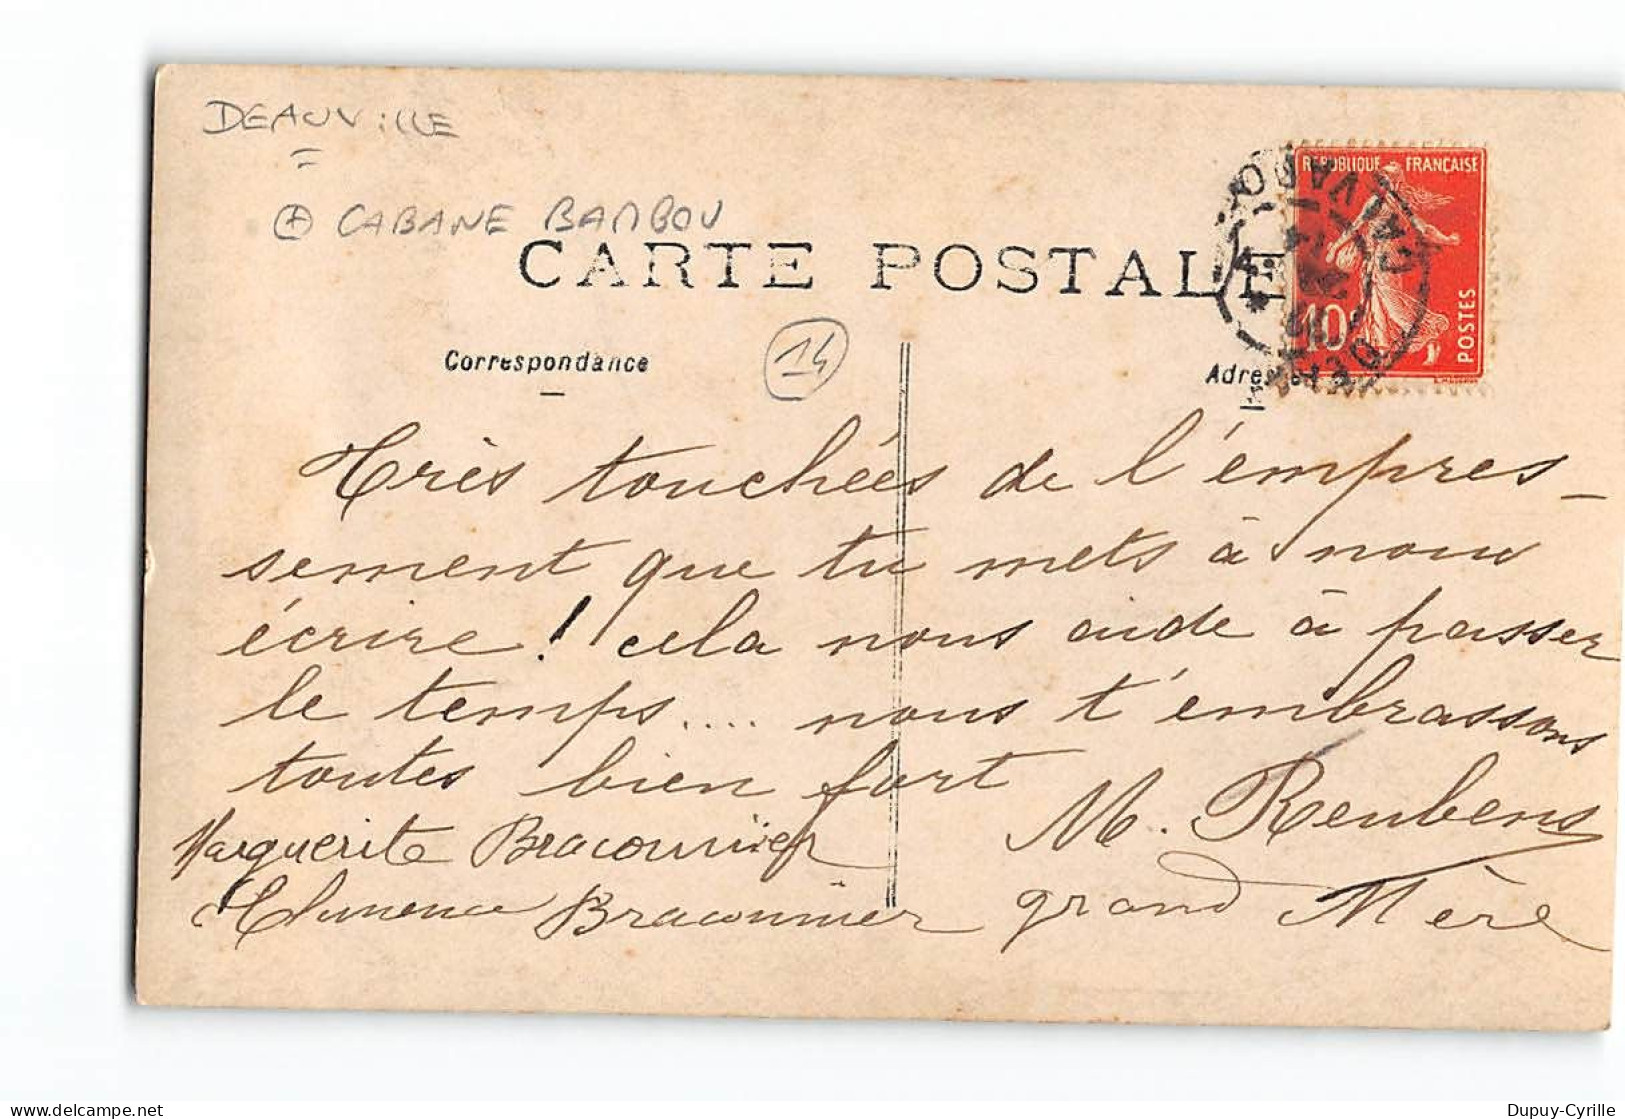 DEAUVILLE
+ CABANE BAMBOU
CARTE POSTALE
REPUBLIQUE FRANÇAISE
10
POSTES
CALVADOS
Correspondance
14
Adresse
Très touchées de l'empres-
sement que tu mets à nous
écrire ! cela nous aide à passer
le temps.... nous t'embrassons
toutes bien fort
M. Reubens
Marguerite Braconnier
grand Mère
Clémence Braconnier
Dupuy-Cyrille